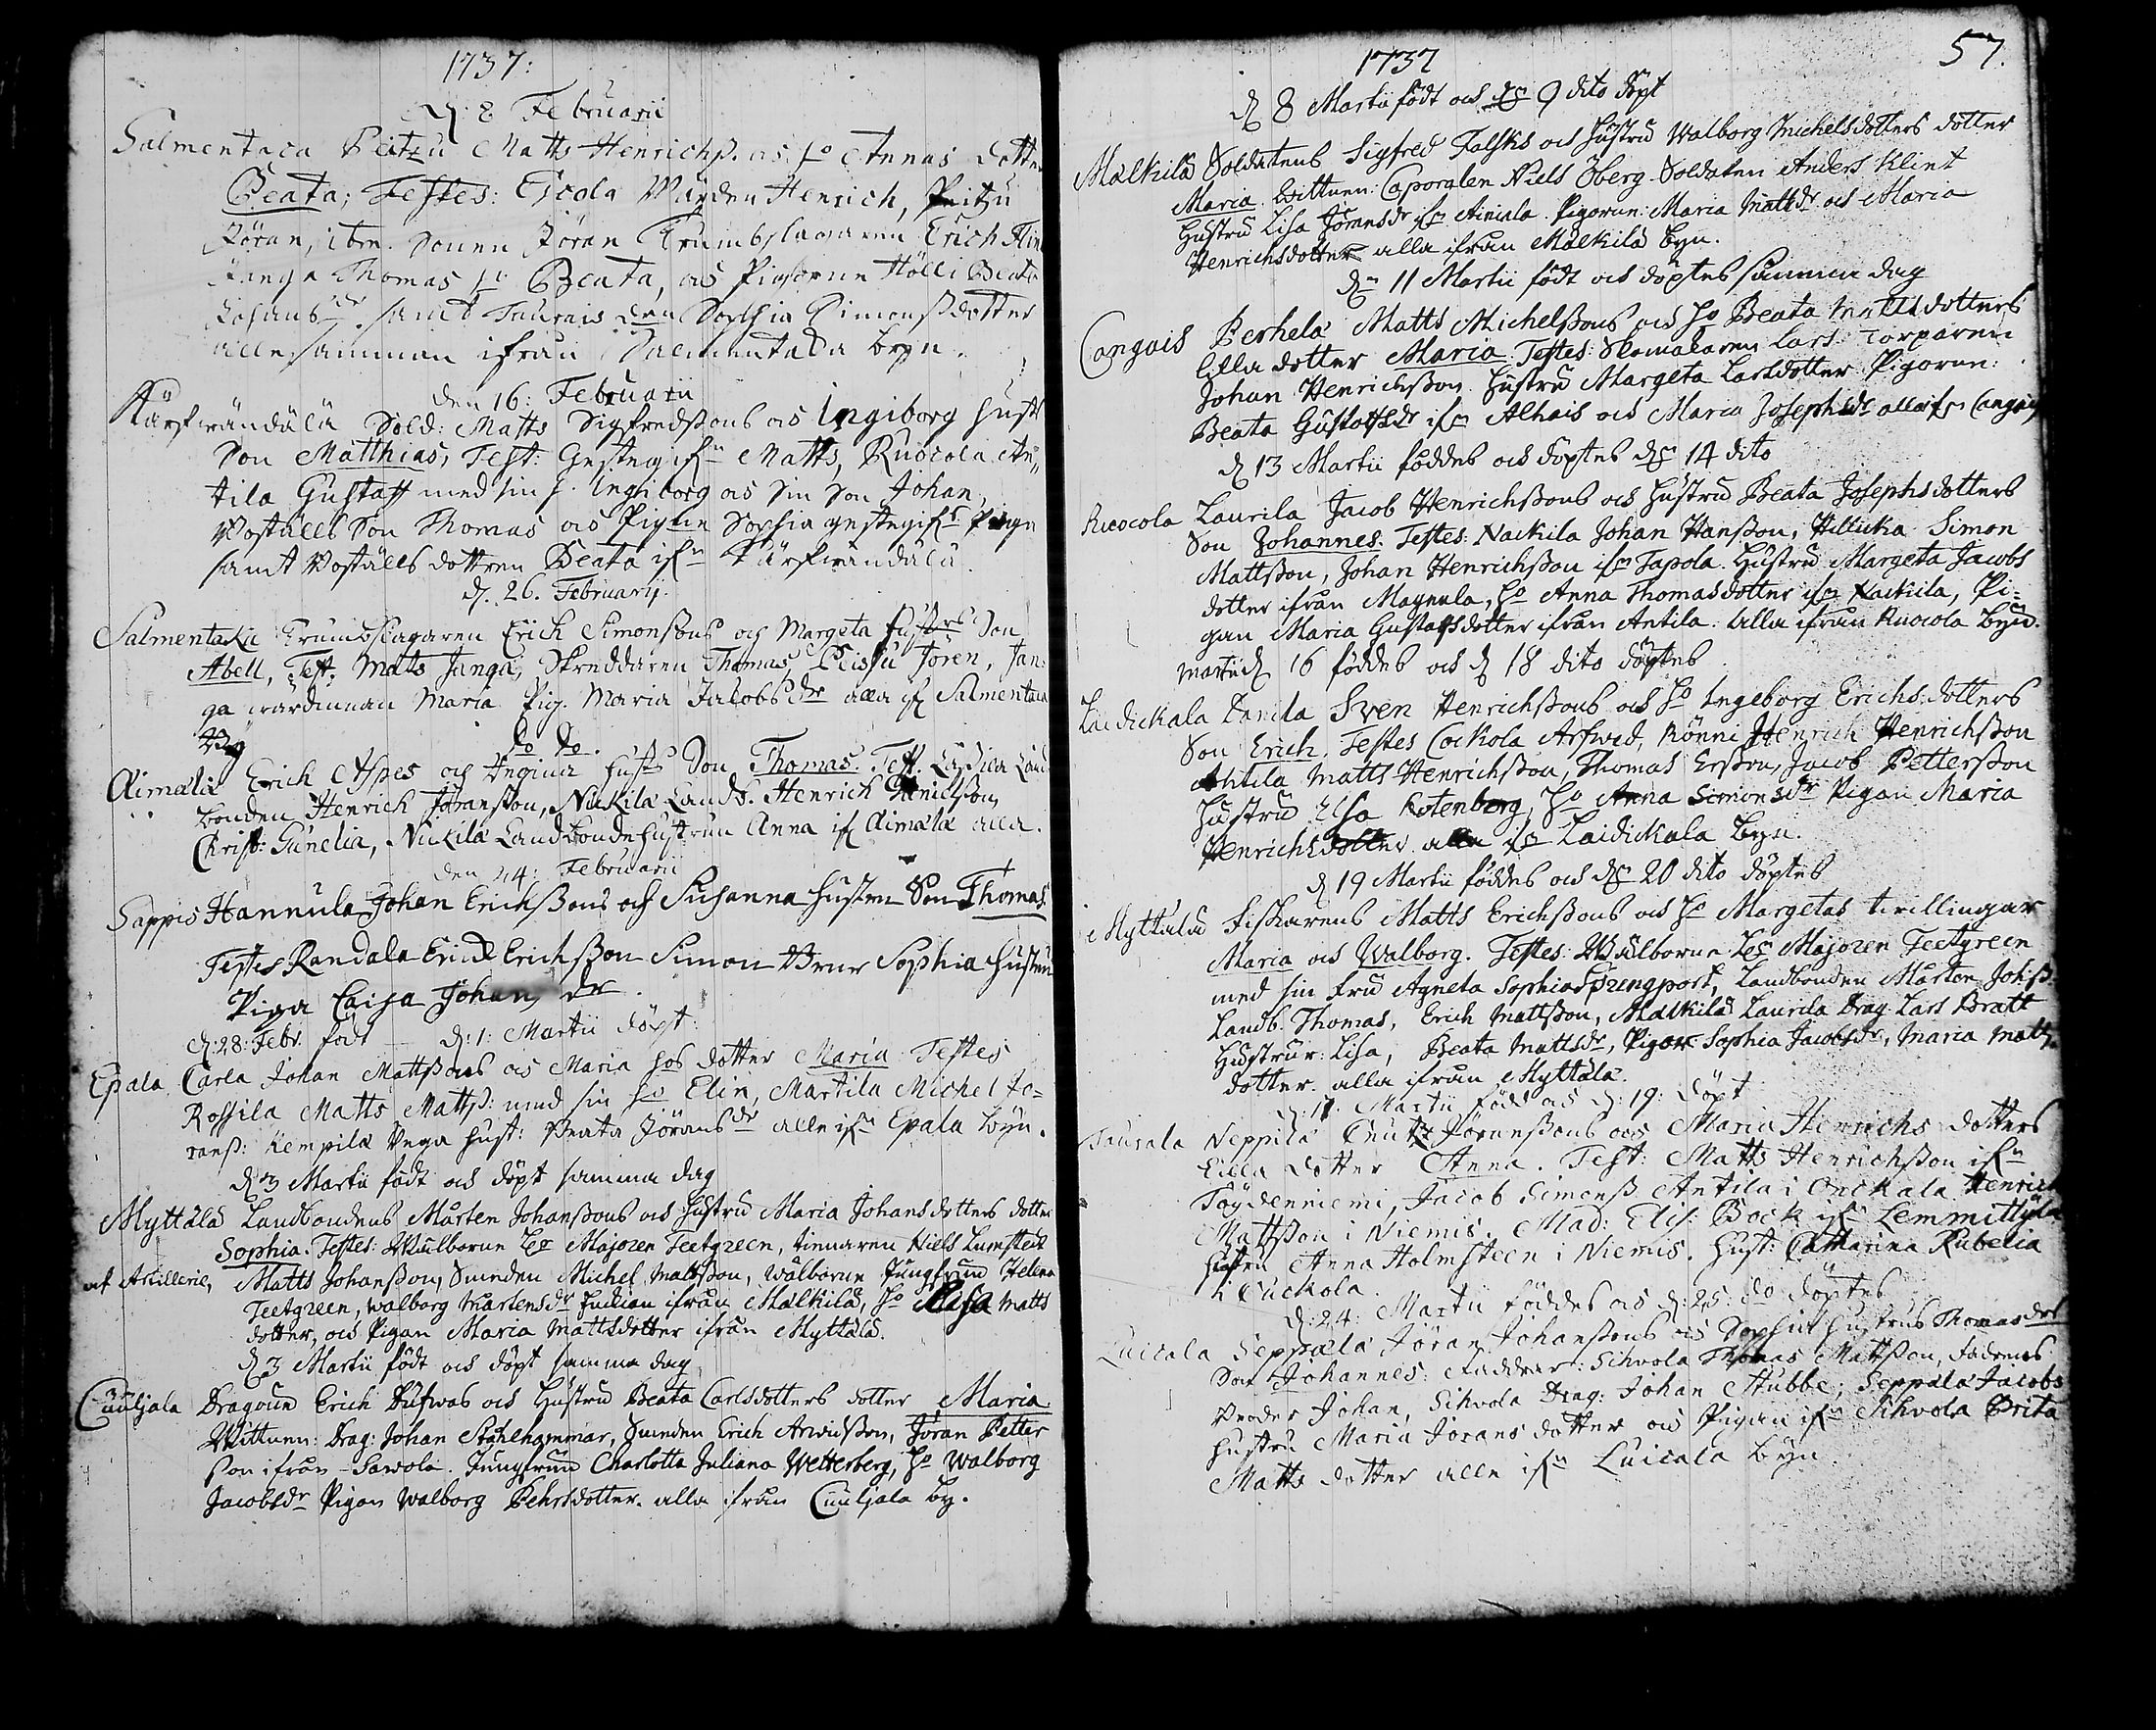 1737:
d. 8 Februarii
Salmentaca Peitzu Matts Henrichß. och Ho Annas dotter
Beata; Testes: Escola Wärden Henrich, Peitzu
Jöran, ibm. Sonen Jöran Trumbslagaren Erich
Janga Thomas Ho Beata, och Pigorne Hölli Beata
Johansdr samt Taurais den Sophia Simonßdotter
allesamman ifrån Salmentaca byn.
den 16: Februarii
Kärfwändälä Sold: Matts Sigfredßons och Ingiborg Hust
Son Matthias, Test: Gestegifn Matts, Ruocola An-
tila Gustaff med sin h. Ingiborg och Sin Son Johan,
Woställs Son Thomas och Pigan Sophia gestegifs Piga
samt Woställs dottren Beata ifn Kärfwändälä.
d. 26. Februarij.
Salmentaka Trumbslagaren Erich Simonßons och Margeta Hustrs Son
Abell, Test: Mats Janga, Skreddaren Thomas, Peissu Jören, Jan-
ga wärdinnan Maria Pig. Maria Jacobsdr alla if Salmentaca
By
do do.
Aimälä Erich Aspes och Regina Hust Son Thomas. Test. Ladica Land
bonden Henrich Jöransson, Nickilä Landb. Henrich Henrichsson,
Christ: Gunelia, Nickilä Landbonde hustrun Anna if Aimälä alla.
den 24: Februarii
Sappis Hannula Johan Erichßons och Susanna Hustrus Son Thomas.
Testes Randala Erich Erichßon Simon Sophia Hustru
Piga Caisa Johans dr.
d: 28: Febr. födt — d: 1: Martii döpt:
Epala Carla Johan Mattßons och Maria Hos dotter Maria Testes
Rossila Matts Mattß: med sin Ho Elin, Martila Michel Jö-
ranß: Kempilä Wega Hust: Beata Jöransdr alle ifn Epala byn.
d 3 Martii födt och döpt samma dag
Myttälä Landbondens Mårten Johanßons och Hustru Maria Johansdotters dotter
Sophia. Testes: Wälborne Hr Majoren Teetgreen, tienaren Niels Lumstedt
af Artillerie, Matts Johanßon, Suenden Michel Mattßon, Wälborne Jungfrun Helena
Teetgreen, Walborg Mårtensdr ifrån Mälkilä, Ho Lisa Matts
dotter, och Pigan Maria Mattsdotter ifrån Myttälä.
d 3 Martii födt och döpt samma dag
Cuuljala Dragoun Erich Dufwas och Hustru Beata Carlsdotters dotter Maria
Wittnen: Drag: Johan Stålhammar, Suenden Erich Arwidßon, Jöran Petter
son ifrån Sawola. Jungfrun Charlotta Juliana Wetterberg, Ho Walborg
Jacobsdr Pigan Walborg Pehrsdotter. alla ifrån Cuuljala by.
1737
57.
d 8 Martii födt och dn 9 dito döpt
Mälkilä Soldatens Sigfred Falsks och Hustru Walborg Michelsdotters dotter
Maria. Wittnen: Caporalen Niels Öberg. Soldaten Anders Klint
Hustru Lisa Jöransdr ifrn Aimala. Pigorna: Maria Mattsdr och Maria
Henrichsdotter alla ifrån Mälkilä byn.
dn 11 Martii födt och döptes samma dag
Cangais Perhelä Matts Michelßons och Ho Beata Mattsdotters
lilla dotter Maria. Testes: Skomakaren Lars. Torparen
Johan Henrichsson. Hustru Margeta Larsdotter. Pigorna:
Beata Gustafsdr ifn Alhais och Maria Josephsdr alla ifn Cangais
d 13 Martii föddes och döptes dn 14 dito
Ruocola Laurila Jacob Henrichßons och Hustru Beata Josephsdotters
Son Johannes. Testes: Nackila Johan Hanßon, Hillucka Simon
Mattsson, Johan Henrichßon ifn Tapola. Hustru Margeta Jacobs
dotter ifrån Magnula, Ho Anna Thomasdotter ifn Nackila, Pi-
gan Maria Gustafsdotter ifrån Antila. Alla ifrån Ruocola byn.
Martii d 16 föddes och d 18 dito döptes
Laidickala Danila Swen Henrichßons och Ho Ingeborg Erichsdotters
Son Erich. Testes Cockola Arfwed, Rönni Henrich Henrichßon
Ahtila Matts Henrichßon, Thomas Ersson, Jacob Petterßon
Hustru Elsa Rotenberg, Ho Anna Simonsdr Pigan Maria
Henrichsdotter alla ifn Laidickala byn.
d 19 Martii föddes och dn 20 dito döptes
Myttälä Fiskarens Matts Erichßons och Ho Margetas twillingar
Maria och Walborg. Testes: Wälborne Hr Majoren Teetgreen
med sin fru Agneta Sophia Springport, Landbonden Mårten Johß
Landb. Thomas, Erich Mattßon, Mälkilä Laurila Drag. Lars Bratt
Hustrur: Lisa, Beata Mattsdr, Pigor Sophia Jacobsdr, Maria Matts
dotter. alla ifrån Myttälä.
d: 17. Martii född och d: 19: döpt
Taurala Neppilä Jöransßons och Maria Henrichs dotters
lilla dotter Anna. Test: Matts Henrichßon ifn
Töydenniemi, Jacob Simonß Antila i Onckala Henrich
Mattßon i Niemis. Mad: Elis: Bock ifn Lemmittylä
Hustru Anna Holmsteen i Niemis. Hust: Catharina Rubelia
i Cuckola.
d: 24: Martii föddes och d: 25: do döptes
Luicala Seppälä Jöran Johanßons och Sophia Hustrus Thomasdrs
Son Johannes: Faddrar: Sihvola Thomas Mattßon, Fadrens
Broder Johan, Sihvola Drag: Johan Stubbe; Seppälä Jacobs
hustru Maria Jörans dotter och Pigan ifn Sihvola Brita
Matts dotter alle ifn Luicala byn.